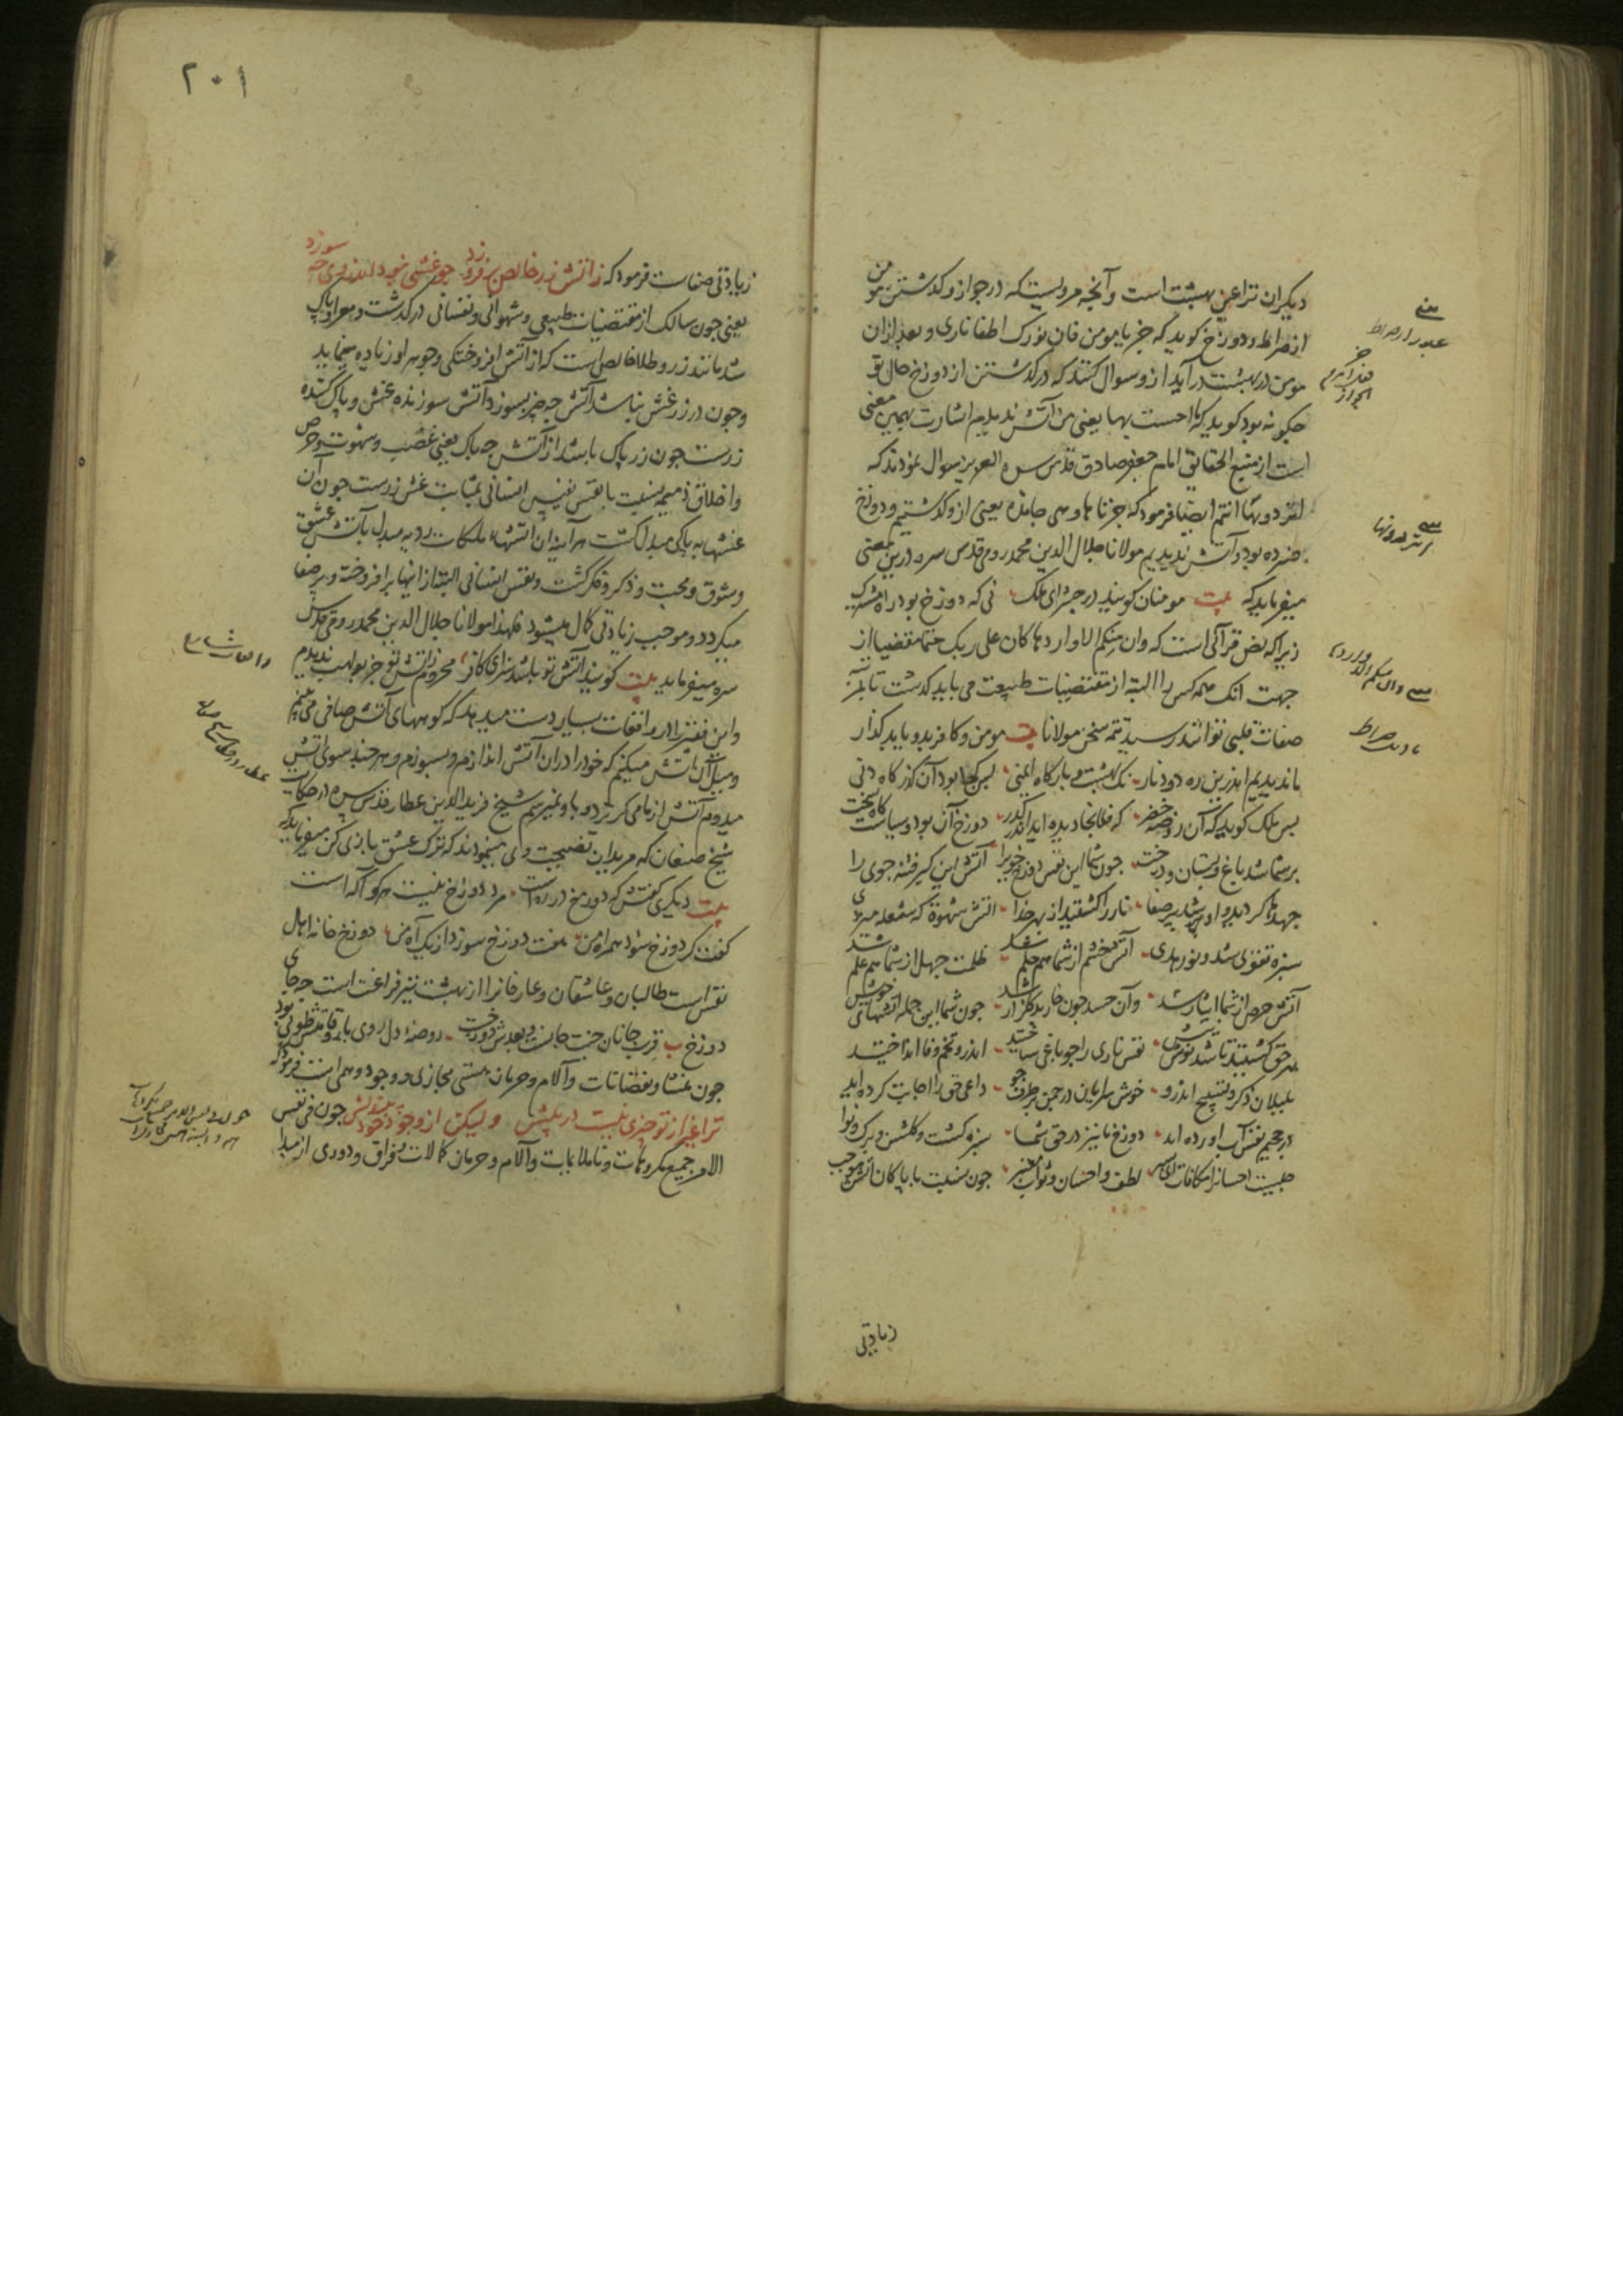 دیکران ترا عین بهشت است و آنچه مرویست که در جواز و کدشتن مومن
از صراط و دوزخ کوید که جز یا مومن فان نورک اطفا ناری و بعد ازان
مومن در بهشت در آید ازو سوال کنند که در کدشتن از دوزخ حال تو
چکونه بود کوید که ما احست بها یعنی من آتش ندیدیم اشارت بهمین معنی
است از منبع الحقایق امام جعفر صادق قدس سره العزیز سوال نمودند که
انتم ایضا فرمود که جزناها و هی خامده یعنی ازو کدشتیم و دوزخ
مرده بود و آتش ندیدیم مولانا جلال الدین محمد رومی قدس سره درین معنی
میفرماید که بیت مومنان کویند در حشر ای ملک نی که دوزخ بود راه مشترک
زیرا که نص قرآنی است که وان منکم الا واردها کان علی ربک حتما مقضیا از
جهت آنک همه کس را البته از مقتضیات طبیعت می باید کدشت تا بمرتبه
صفات قلبی توانند رسید تتمه سخن مولانا بیت مومن و کافر برو یابد کذار
ما ندیدیم اندرین ره دود و نار نک بهشت و بارکاه ایمنی پس کجا بود آن کذرکاه دنی
پس ملک کوید که آن روضه خضر که فلانجا دیده اید اندر کذر دوزخ آن بود و سیاستکاه سخت
بر شما شد باغ و بستان و درخت چون شما این نفس دوزخ خوی را آتش این کبر فتنه جوی را
جهدها کردید و او شد پر صفا نار را کشتید از بهر خدا آتش شهوة که شعله میزدی
سبزه تقوی شد و نور هدی آتش خشم از شما هم حلم شد ظلمت جهل از شما هم علم شد
آتش حرص از شما ایثار شد وان حسد چون خار بد کلزار شد چون شما این جمله آتشهای خویش
بهر حق کشتید تا شد نوش نیش نفس ناری را چو باغی ساختید اندرو تخم وفا انداختید
بلبلان ذکر و تسبیح اندرو خوش سرایان در چمن بر طرف جو داعی حق را اجابت کرده اید
در جحیم نفس آب آورده اند دوزخ ما نیز در حق شما سبزه کشت و کلشن و برک و نوا
چیست احسانرا مکافات ای پسر لطف و احسان و ثواب معتبر چون نسبت با پاکان آتش موجب
زیادتی
۲۰۱
زیادتی صفاست فرمود که ز آتش زر خالص برفروزد چو غشی نبود اندر وی چه سوزد
یعنی چون سالک از مقتضیات طبیعی و شهوانی و نفسانی درکدشت و مبرا و پاک
شد مانند زر و طلا خالص است که از آتش افروختکی و جوهر او زیاده مینماید
و چون در زر غش نباشد آتش چه چیز بسوزد آتش سوزنده غش و پاک کننده
زرست چون زر پاک باشد از آتش چه باک یعنی غضب و شهوت و حرص
و اخلاق ذمیمه نسبت با نفس نفیس انسانی بمثابت غش زرست چون آن
غشها به پاکی مبدل کشت هر آینه آن آتشهاء ملکات ردیه مبدل بآتش عشق
و شوق و محبت و ذکر و فکر کشت و نفس انسانی البته از اینها برافروخته و پر صفا
میکردد و موجب زیادتی کمال میشود فلهذا مولانا جلال الدین محمد رومی قدس
سره میفرماید بیت کویند آتش تو باشد سزای کافر محروم ز آتش تو جز بولهب ندیدم
و این فقیر را در واقعات بسیار دست میدهد که کوههای آتش صافی می بینم
و میل آن آتش میکنم که خود را در آن آتش اندازم و بسوزم و هر چند سوی آتش
میدوم آتش از ما می کریزد و باو نمیرسم شیخ فرید الدین عطار قدس سره در حکایت
شیخ صنعان که مریدان نصیحت وی مینمودند که ترک عشق بازی کن میفرماید که
بیت دیکری کفتش که دوزخ در ره است مرد دوزخ نیست هر کو آکه است
کفت کر دوزخ شود همراه من هفت دوزخ سوزد از یک آه من دوزخ خانه اهل
نفس است طالبان و عاشقان و عارفانرا از بهشت نیز فراغت است چه جای
دوزخ ب قرب جانان جنت جانست و بعدش دوزخست روضه دل روی یار و قامتش طوبی بود
چون منشا و نقصانات و آلام و حرمان هستی مجازی و وجود وهمی است فرمود که
ترا غیر از تو چیزی نیست در پیش ولیکن از وجود خود بیندیش چون فی نفس
الامر جمیع مکروهات و ناملایمات و آلام و حرمان کمالات و فراق و دوری از مبدا